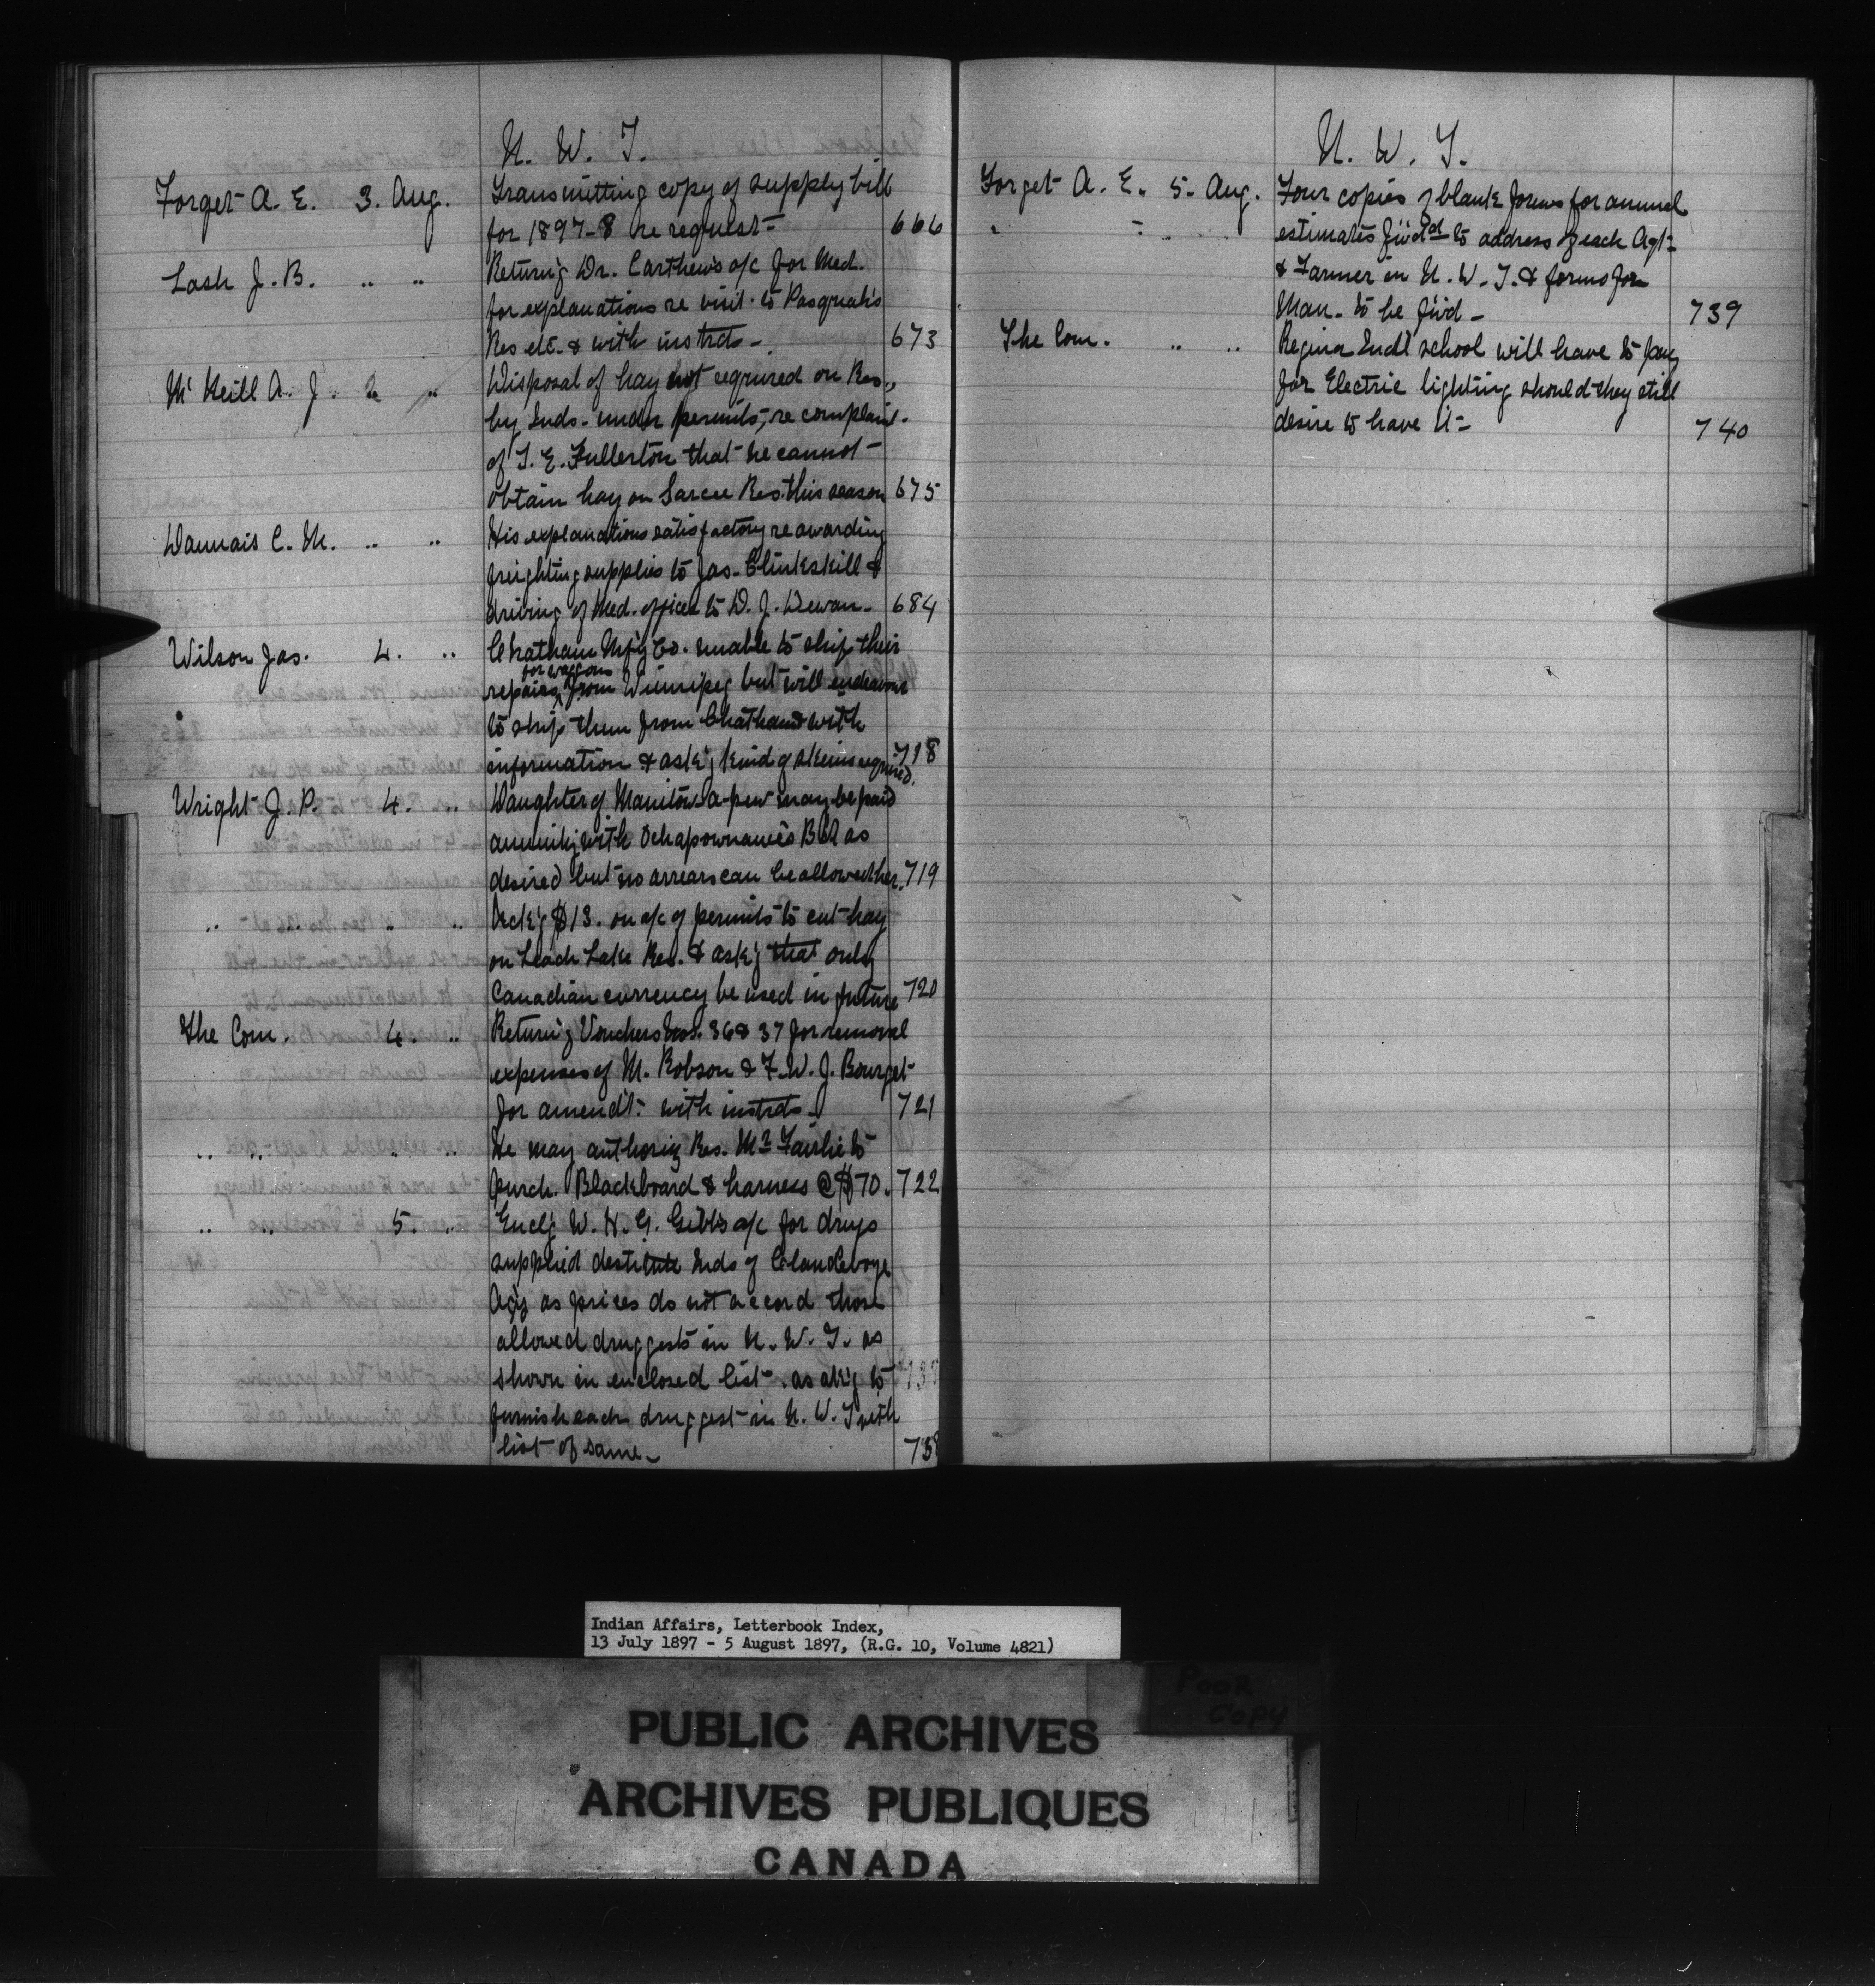 N. W. T.
Forget A. E. 3. Aug. Transmitting copy of supply bill
for 1897-8 re request- 666
Lash J. B. " " Return'g Dr. Carthew's a/c for Med.
for explanations re visit to Pasquah's
Res etc. & with instrcts - 673
McNeill A. J. 2 " Disposal of hay not required on Res.,
by Inds. under permits, re complaint
of T. E. Fullerton that he cannot
obtain hay on Sarcee Res. this season 675
Daunais C. M. " " His explanations satisfactory re awarding
freighting supplies to Jas. Clinkskill &
driving of Med. officer to D. J. Dewan - 684
Wilson Jas. 4. " Chatham Mf'g Co. unable to ship their
for waggons
repairs from Winnipeg but will endeavour
to ship them from Chatham with
information & ask'g kind of skeins required. 718
Wright J. P. 4. " Daughter of Manitow-a-pew may be paid
annuity with Ochapownace's Bd as
desired but no arrears can be allowed her. 719
" " " Ack'g $13. on a/c of permits to cut hay
on Leach Lake Res. & ask'g that only
Canadian currency be used in future 720
The Com. 4. " Return'g Vouchers Nos. 36 & 37 for removal
expenses of M. Robson & F. W. J. Bourget
for amend't with instrcts - 721
" " " " He may authorize Res. Mr Fairlie to
purch. Blackboard & harness @ $70. 722
" " 5. " Encl'g W. H. G. Gibb's a/c for drugs
supplied destitute Inds of Clandeboye
Ag'y as prices do not accord those
allowed druggests in N. W. T. as
shown in enclosed list - as ask'g to
furnish each druggest in N. W. T with
list of same - 738
N. W. T.
Forget A. E. 5. Aug. Four copies of blank forms for annual
" " " estimates f'w'd'd to address of each Agt
& Farmer in N. W. T. & forms for
Man. to be f'w'd - 739
The Com. " " Regina Indl school will have to pay
for Electric lighting should they still
desire to have it - 740
Indian Affairs, Letterbook Index,
13 July 1897 - 5 August 1897, (R.G. 10, Volume 4821)
POOR
COPY
PUBLIC ARCHIVES
ARCHIVES PUBLIQUES
CANADA